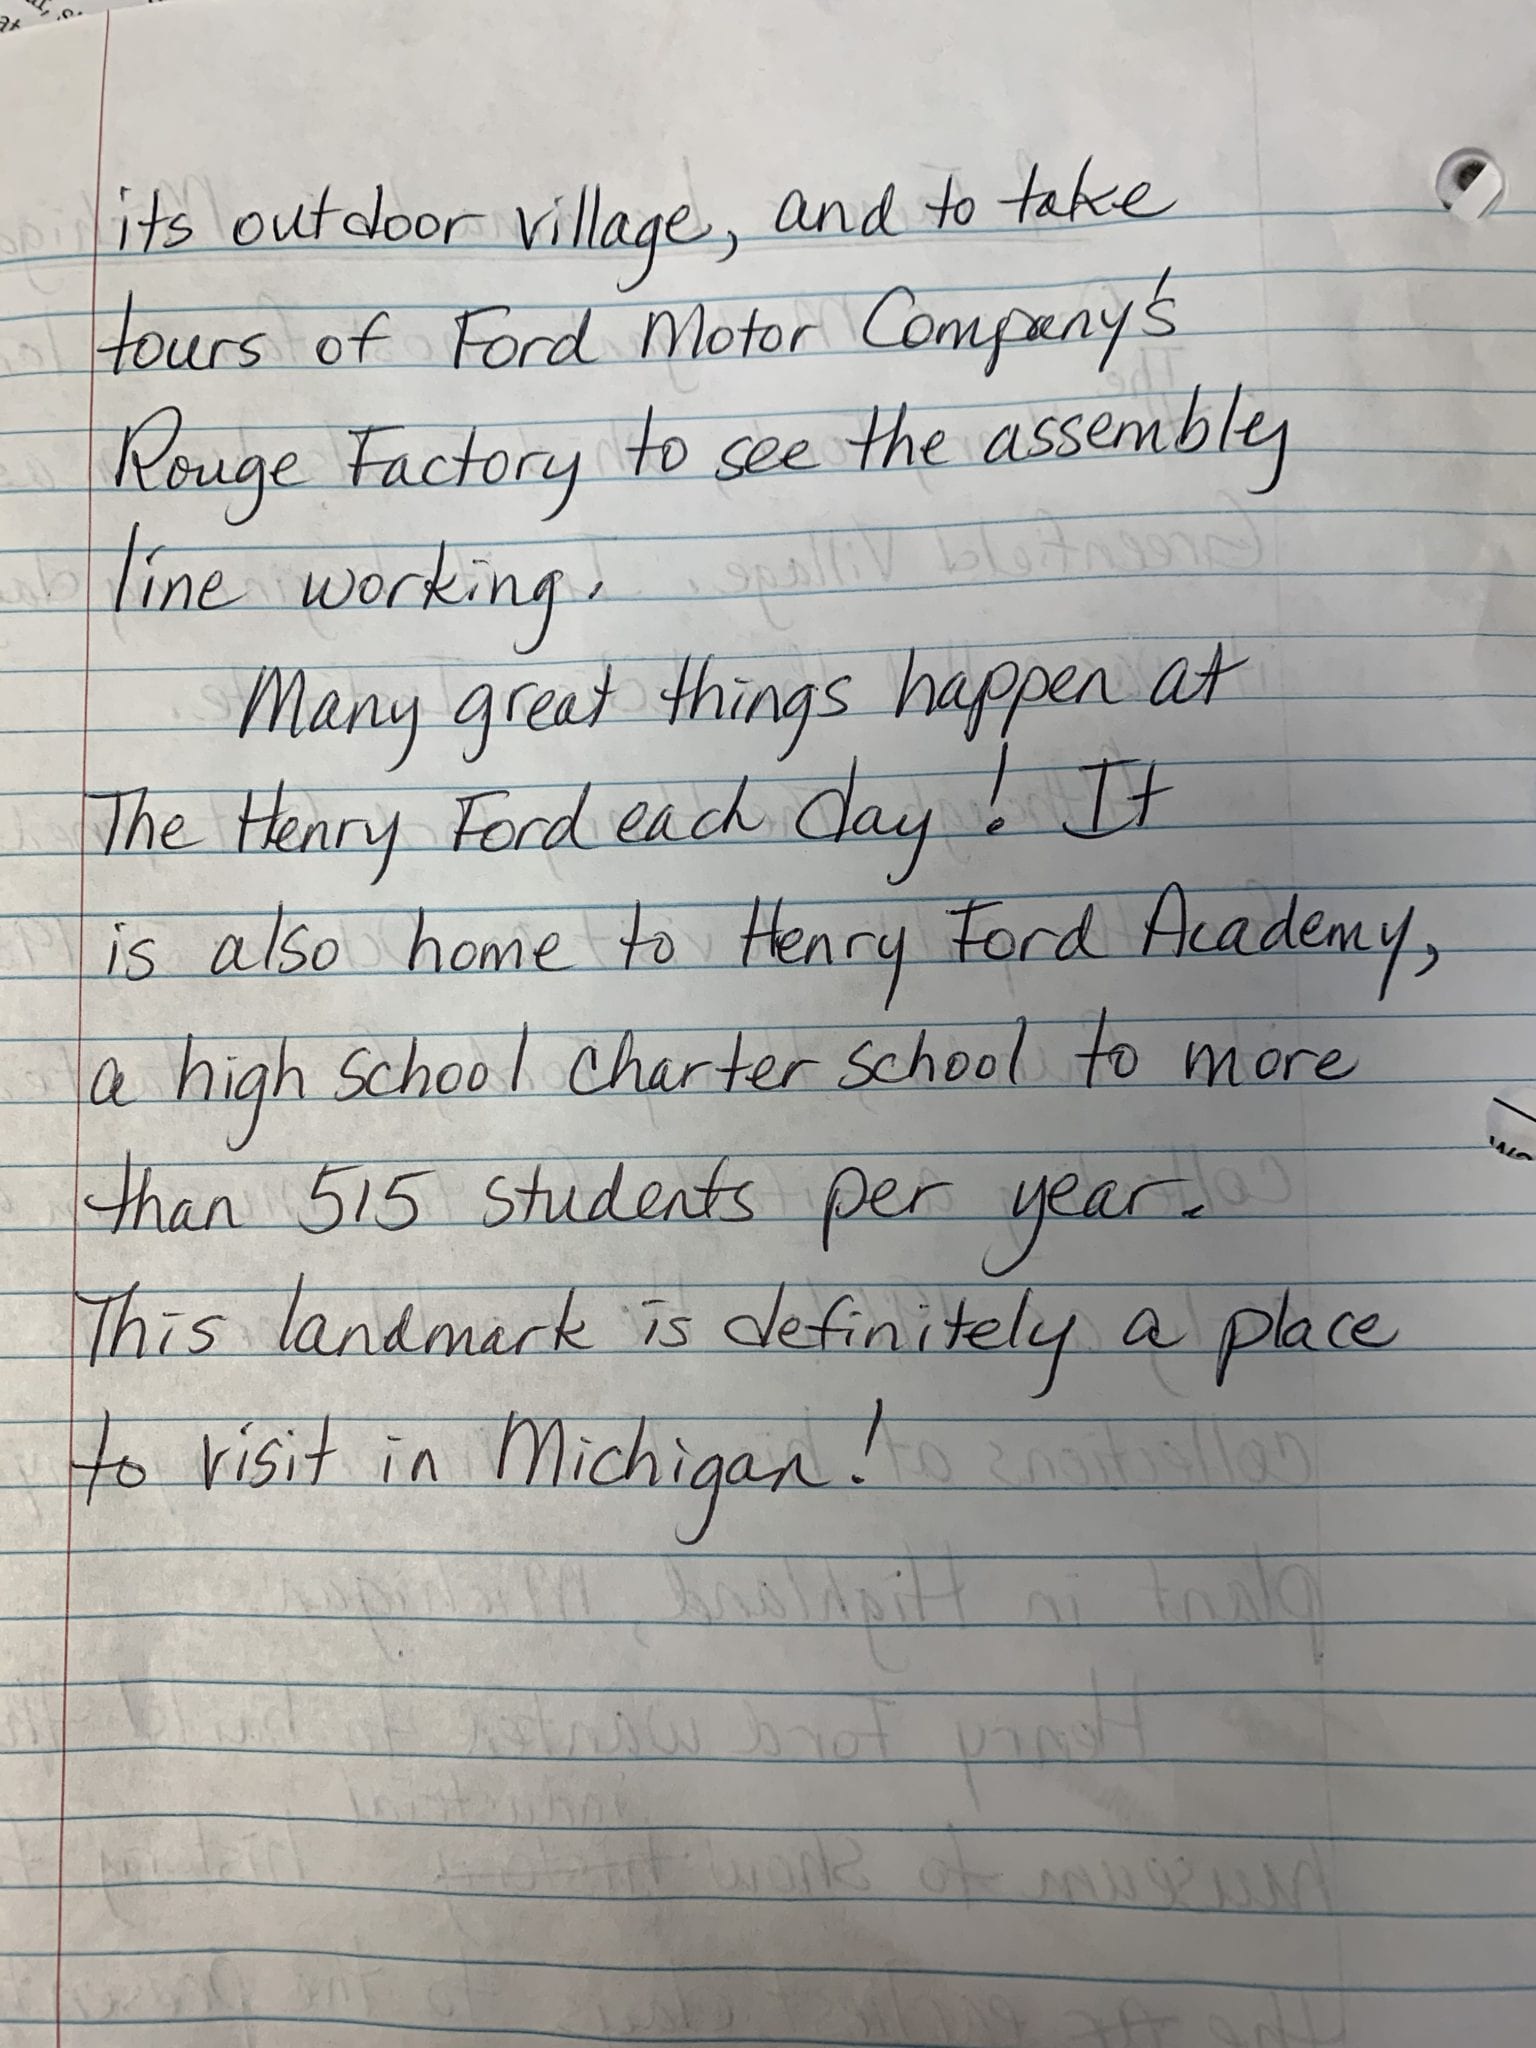 its outdoor village, and to take
tours of Ford Motor Company's
Rouge Factory to see the assembly
line working.
Many great things happen at
The Henry Ford each day! It
is also home to Henry Ford Academy,
a high school charter school to more
than 515 students per year.
This landmark is definitely a place
to visit in Michigan!